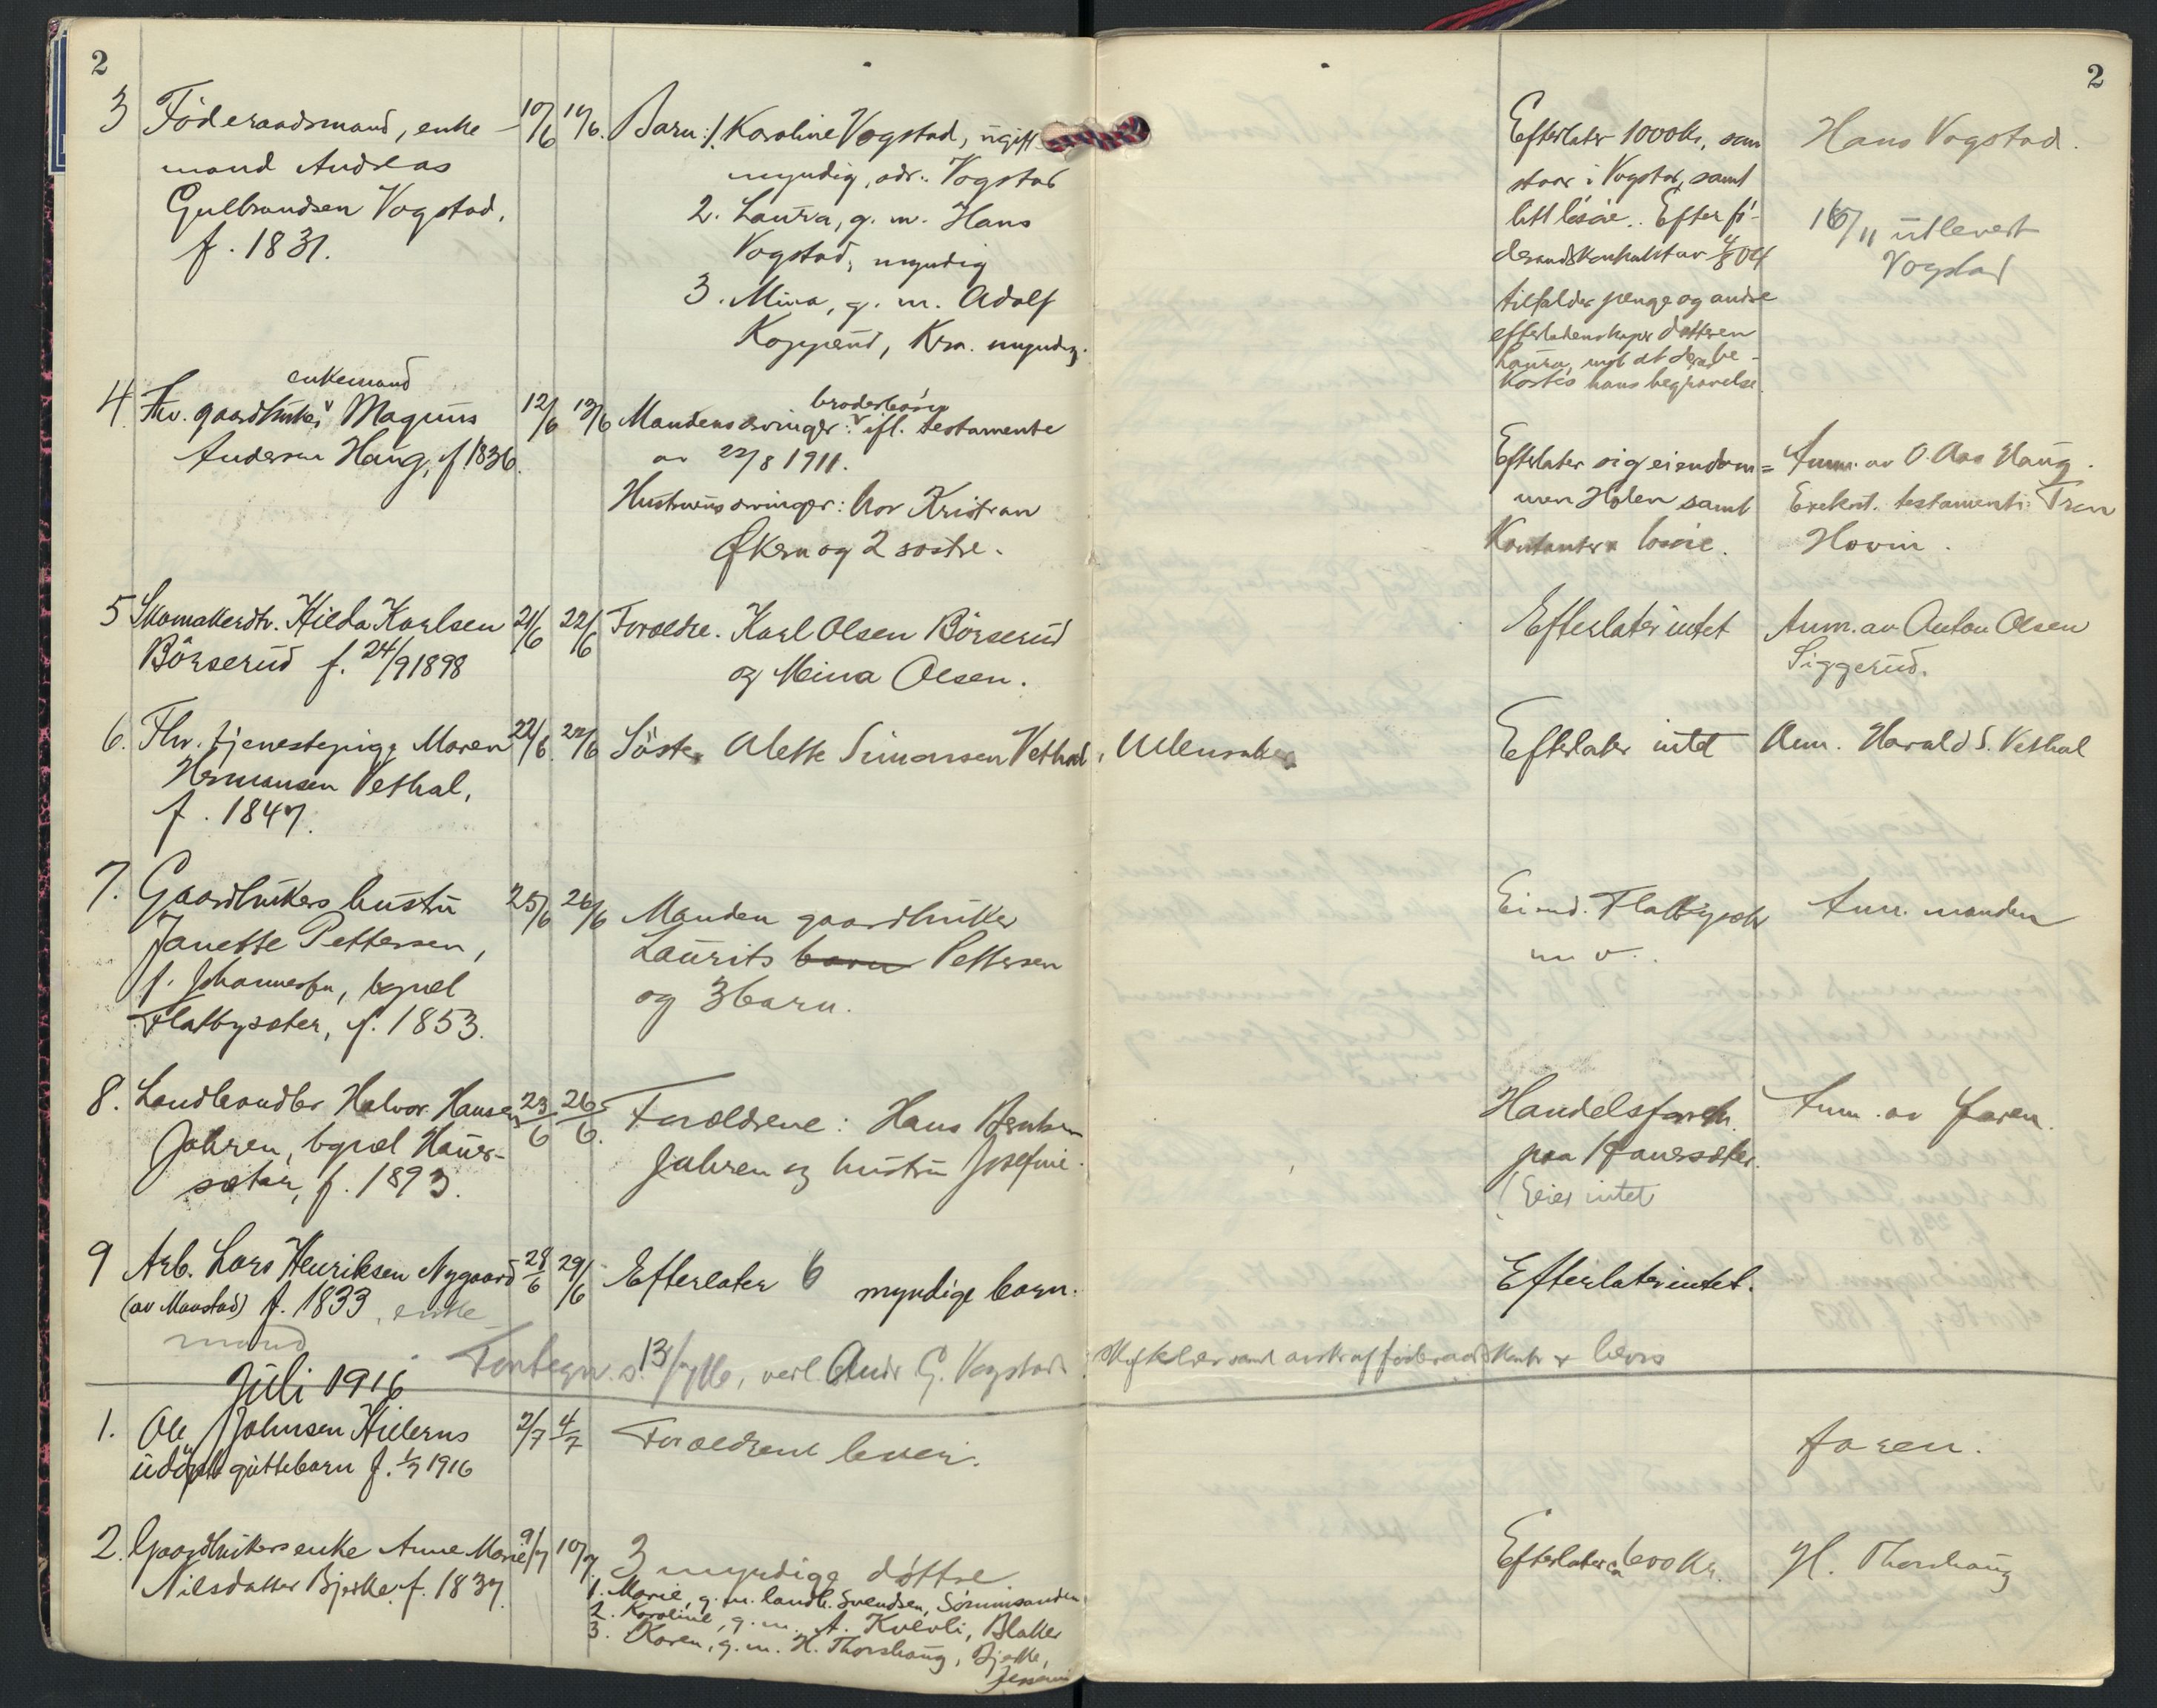 2
2
3 Föderaadsmand, enke- 10/6 14/6. Barn: 1. Karoline Vogstad, ugift
mand Andreas myndig, adr.: Vogstad
Gulbrandsen Vogstad, 2. Laura, g. m. Hans
f. 1831. Vogstad, myndig
3. Mina, g. m. Adolf
Koppend, Kra. myndig.
Efterlater 1000 kr, som
staar i Vogstad, samt
litt lösöre. Efter fö-
deraadskontrakt av 4/8 04
tilfalder penge og andre
efterladenskaper datteren
Laura, mot at
kostes hans begravelse.
Hans Vogstad.
16/11 utlevert
Vogstad
enkemand
4. Fhv. gaardbruker Magnus 12/6 13/6 Mandens arvinger: broderbörn ifl. testamente
Andersen Haug, f. 1836. av 22/8 1911.
Hustruens arvinger: bror Kristian
Økern og 2 søstre.
Efterlater sig eiendom=
men Holen samt
Kontanter & lösöre.
Anm. av O. Aas Haug.
Exekut. testamenti: Tron
Hovin.
5 Skomakerdtr. Hilda Karlsen 21/6 22/6 Foreldre. Karl Olsen Börserud
Börserud f. 24/9 1898 og Mina Olsen.
Efterlater intet
Anm. av Anton Olsen
Siggerud.
6. Fhv. tjenestepige Maren 22/6. 22/6 Söster Alette Simonsen Vethal, Ullensaker
Hermansen Vethal,
f. 1847.
Efterlater intet
Anm. Harald S. Vethal
7. Gaardbrukers hustru 25/6 26/6 Manden gaardbruker
Janette Pettersen, Laurits barn Pettersen
f. Johannesen, bopæl og 3 barn.
Flatbysæter, f. 1853.
Eiend. Flatbysæter
m v.
Anm. manden
8. Landhandler Halvor Hansen 23/6 26/6. Foreldrene: Hans Berntsen
Jahren, bopæl Hauer- Jahren og hustru Josefine.
sæter, f. 1893.
Handelsforretn.
paa Hauersæter.
(Eier intet
Anm. av faren.
9 Arb. Lars Henriksen Nygaard 28/6 29/6 Efterlater 6 myndige barn.
(av Maustad) f. 1833, enke
mand
Efterlater intet.
Fortegn. s. 13/7 16, vedl. Andr G. Vogstad. Skifteklær samt avskr af föderaadskontr & bevis
Juli 1916
1. Ole Johnsen Hielerns 2/7 4/7 Foreldrene lever.
udöpt guttebarn f. 1/7 1916
faren.
2. Gaardbrukers enke Anne Marie 9/7 10/7. 3 myndige døttre.
Nilsdatter Bjerke. f. 1837.
1. Marie, g. m. landh. Svendsen, Sörumsanden
2. Karoline, g. m. A. Kvevli, Blaker
3. Karen, g. m. H. Thorshaug, Bjerke,
Jessheim
Efterlater ca 600 kr.
H. Thorshaug